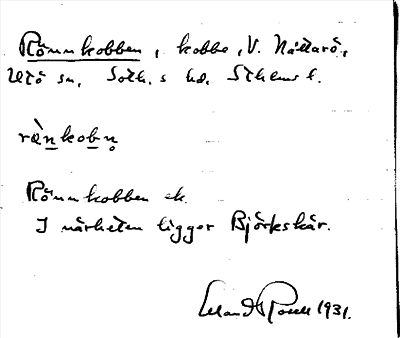 Rönnkobben, kobbe, V. Nåttarö,
Utö sn, Soth.s hd, Sthlms l.
rænkobn̥
Rönnkobben ek.
I närheten ligger Björkskär.
1931.